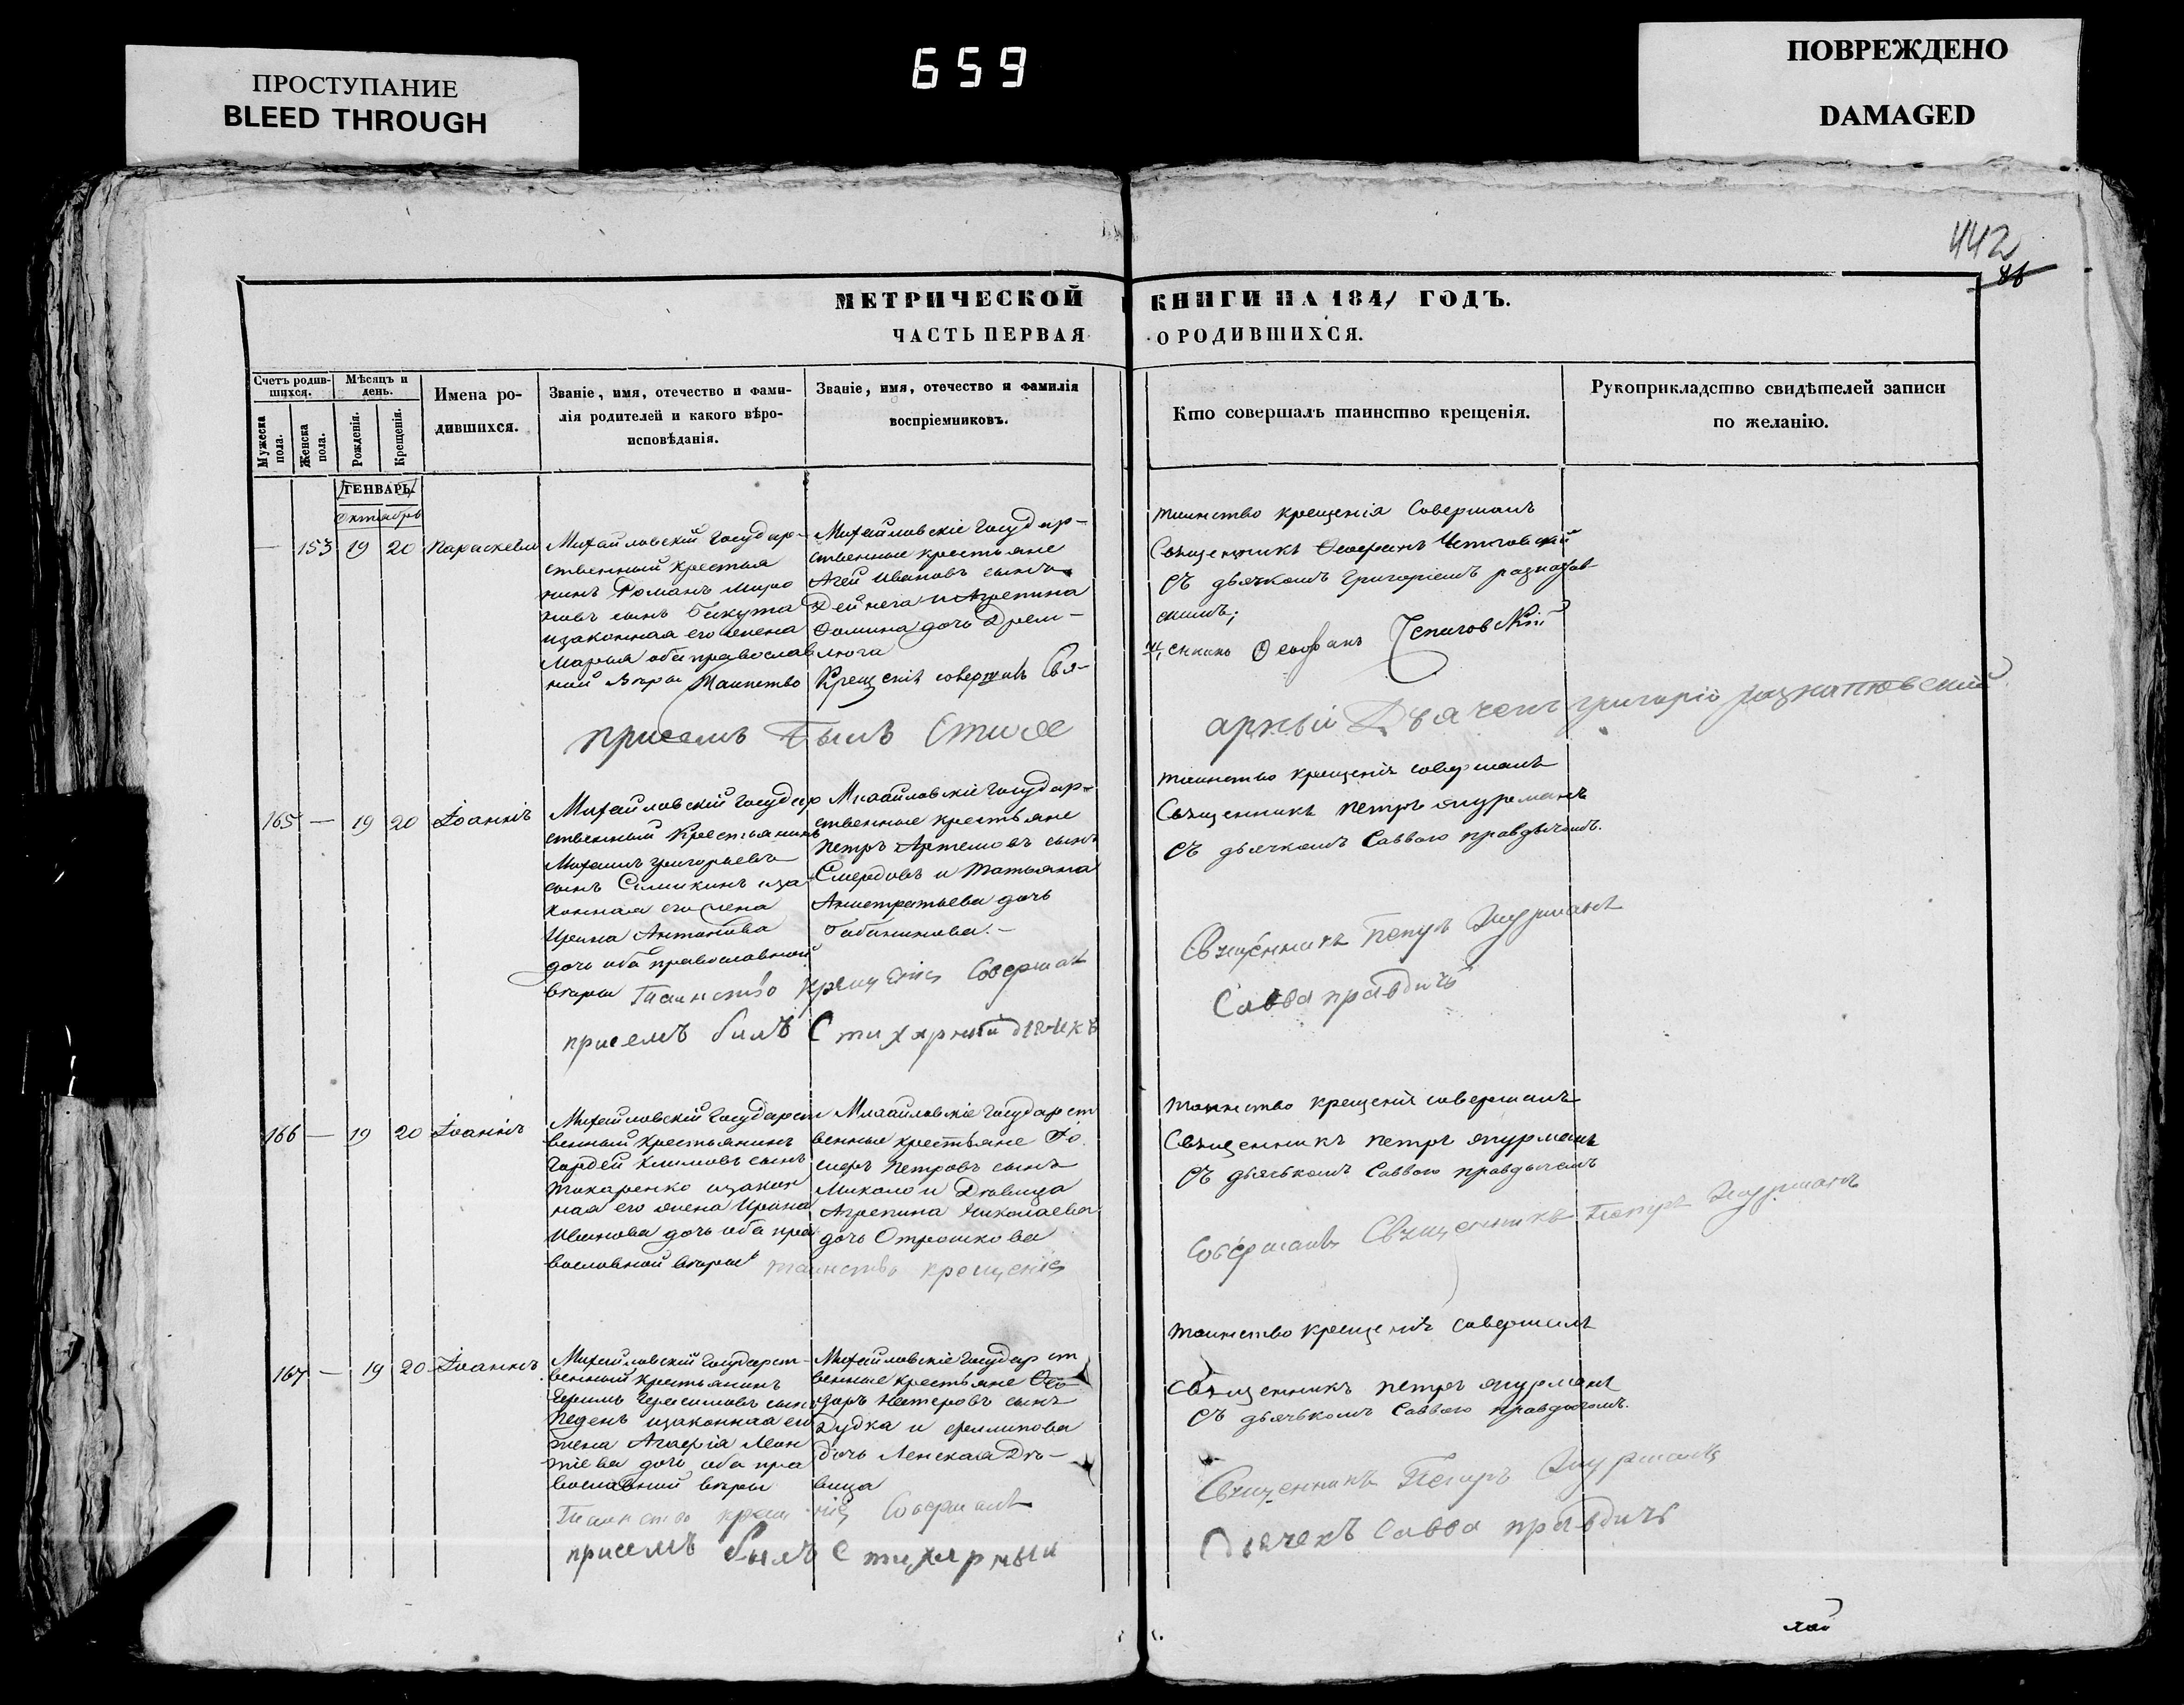 ПРОСТУПАНИЕ
BLEED THROUGH
659
ПОВРЕЖДЕНО
DAMAGED
442
86
МЕТРИЧЕСКОЙ КНИГИ НА 1841 ГОДЪ.
ЧАСТЬ ПЕРВАЯ О РОДИВШИХСЯ.
Счетъ родив-
шихся.
Мужеска
пола.
Женска
пола.
Мѣсяцъ и
день.
Рожденія.
Крещенія.
Имена ро-
дившихся.
Званіе, имя, отечество и фами-
лія родителей и какого вѣро-
исповѣданія.
Званіе, имя, отечество и фамилія
воспріемниковъ.
Кто совершалъ таинство крещенія.
Рукоприкладство свидѣтелей записи
по желанію.
ГЕНВАРЬ
Октябрь
— 153 19 20 Параскева
Михайловскій государ-
ственный крестья
нинъ Романъ Миро
новъ сынъ
изаконная его жена
Марья оба православ
ной вѣры Таинство
Михайловскіе государ-
ственные крестьяне
Агей Ивановъ сынъ
Дейнега и Агрепина
Фомина дочь Дрем-
люга
Крещенія совершалъ Свя-
таинство крещенія совершалъ
Священникъ Феофанъ
съ дьячкомъ Григоріемъ
скимъ;
щенникъ Феофанъ
присемъ былъ Стих
арный Дьячекъ Григорій
165 — 19 20 Іоаннъ
Михайловскій государ
ственный крестьянинъ
Михаилъ Григорьевъ
сынъ иза
конная его жена
Ирина Антонова
дочь оба православной
вѣры Таинство
Михайловскіе государ-
ственные крестьяне
Петръ Артемовъ сынъ
Смердовъ и Татьяна
дочь
крещенія Совершалъ
таинство крещенія совершалъ
Священникъ Петръ
съ дьячкомъ Саввою Правдычомъ.
Священникъ Петръ
присемъ билъ Стихарный дячикъ
Савва Правдичъ
166 — 19 20 Іоаннъ
Михайловскій государст
венный крестьянинъ
Гордей Климовъ сынъ
Токаренко изакон
ная его жена Ирина
Иванова дочь оба пра
вославной вѣры таинство
Михайловскіе государст
венные крестьяне
Петровъ сынъ
и Дѣвица
Агрепина Николаева
дочь Отрошкова
крещенія
таинство крещенія совершалъ
Священникъ Петръ
съ дьячькомъ Саввою Правдычемъ
Совершалъ Священникъ Петръ
167 — 19 20 Іоаннъ
Михайловскій государст-
венный крестьянинъ
Герасимовъ сынъ
Педенъ изаконная его
жена Агафія Леон
тіева дочь оба пра
вославной вѣры
Таинство крещенія Совершалъ
Михайловскіе государст
венные крестьяне Фео
доръ Нестеровъ сынъ
Дудка и Филипова
дочь Ленская Дѣ-
вица
таинство крещенія совершалъ
Священникъ Петръ
съ дьячькомъ Саввою Правдычомъ.
Священникъ Петръ
присемъ былъ Стихарный
Дьячекъ Савва Правдичъ